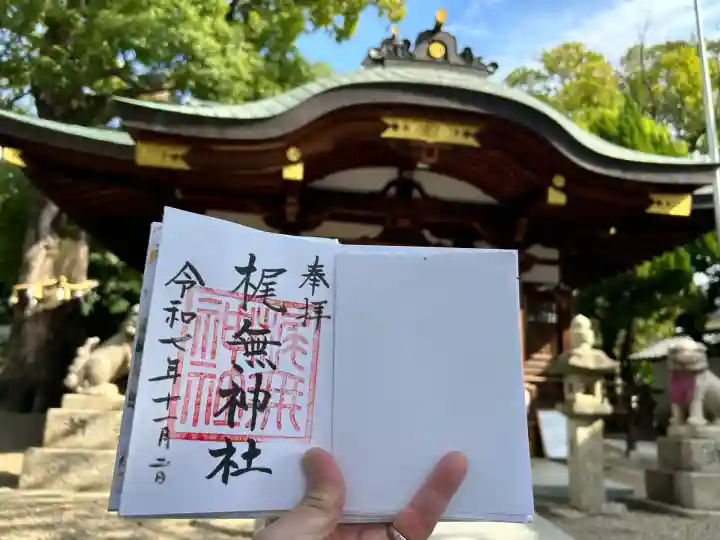 奉拝
梶無神社
令和七年十一月二日